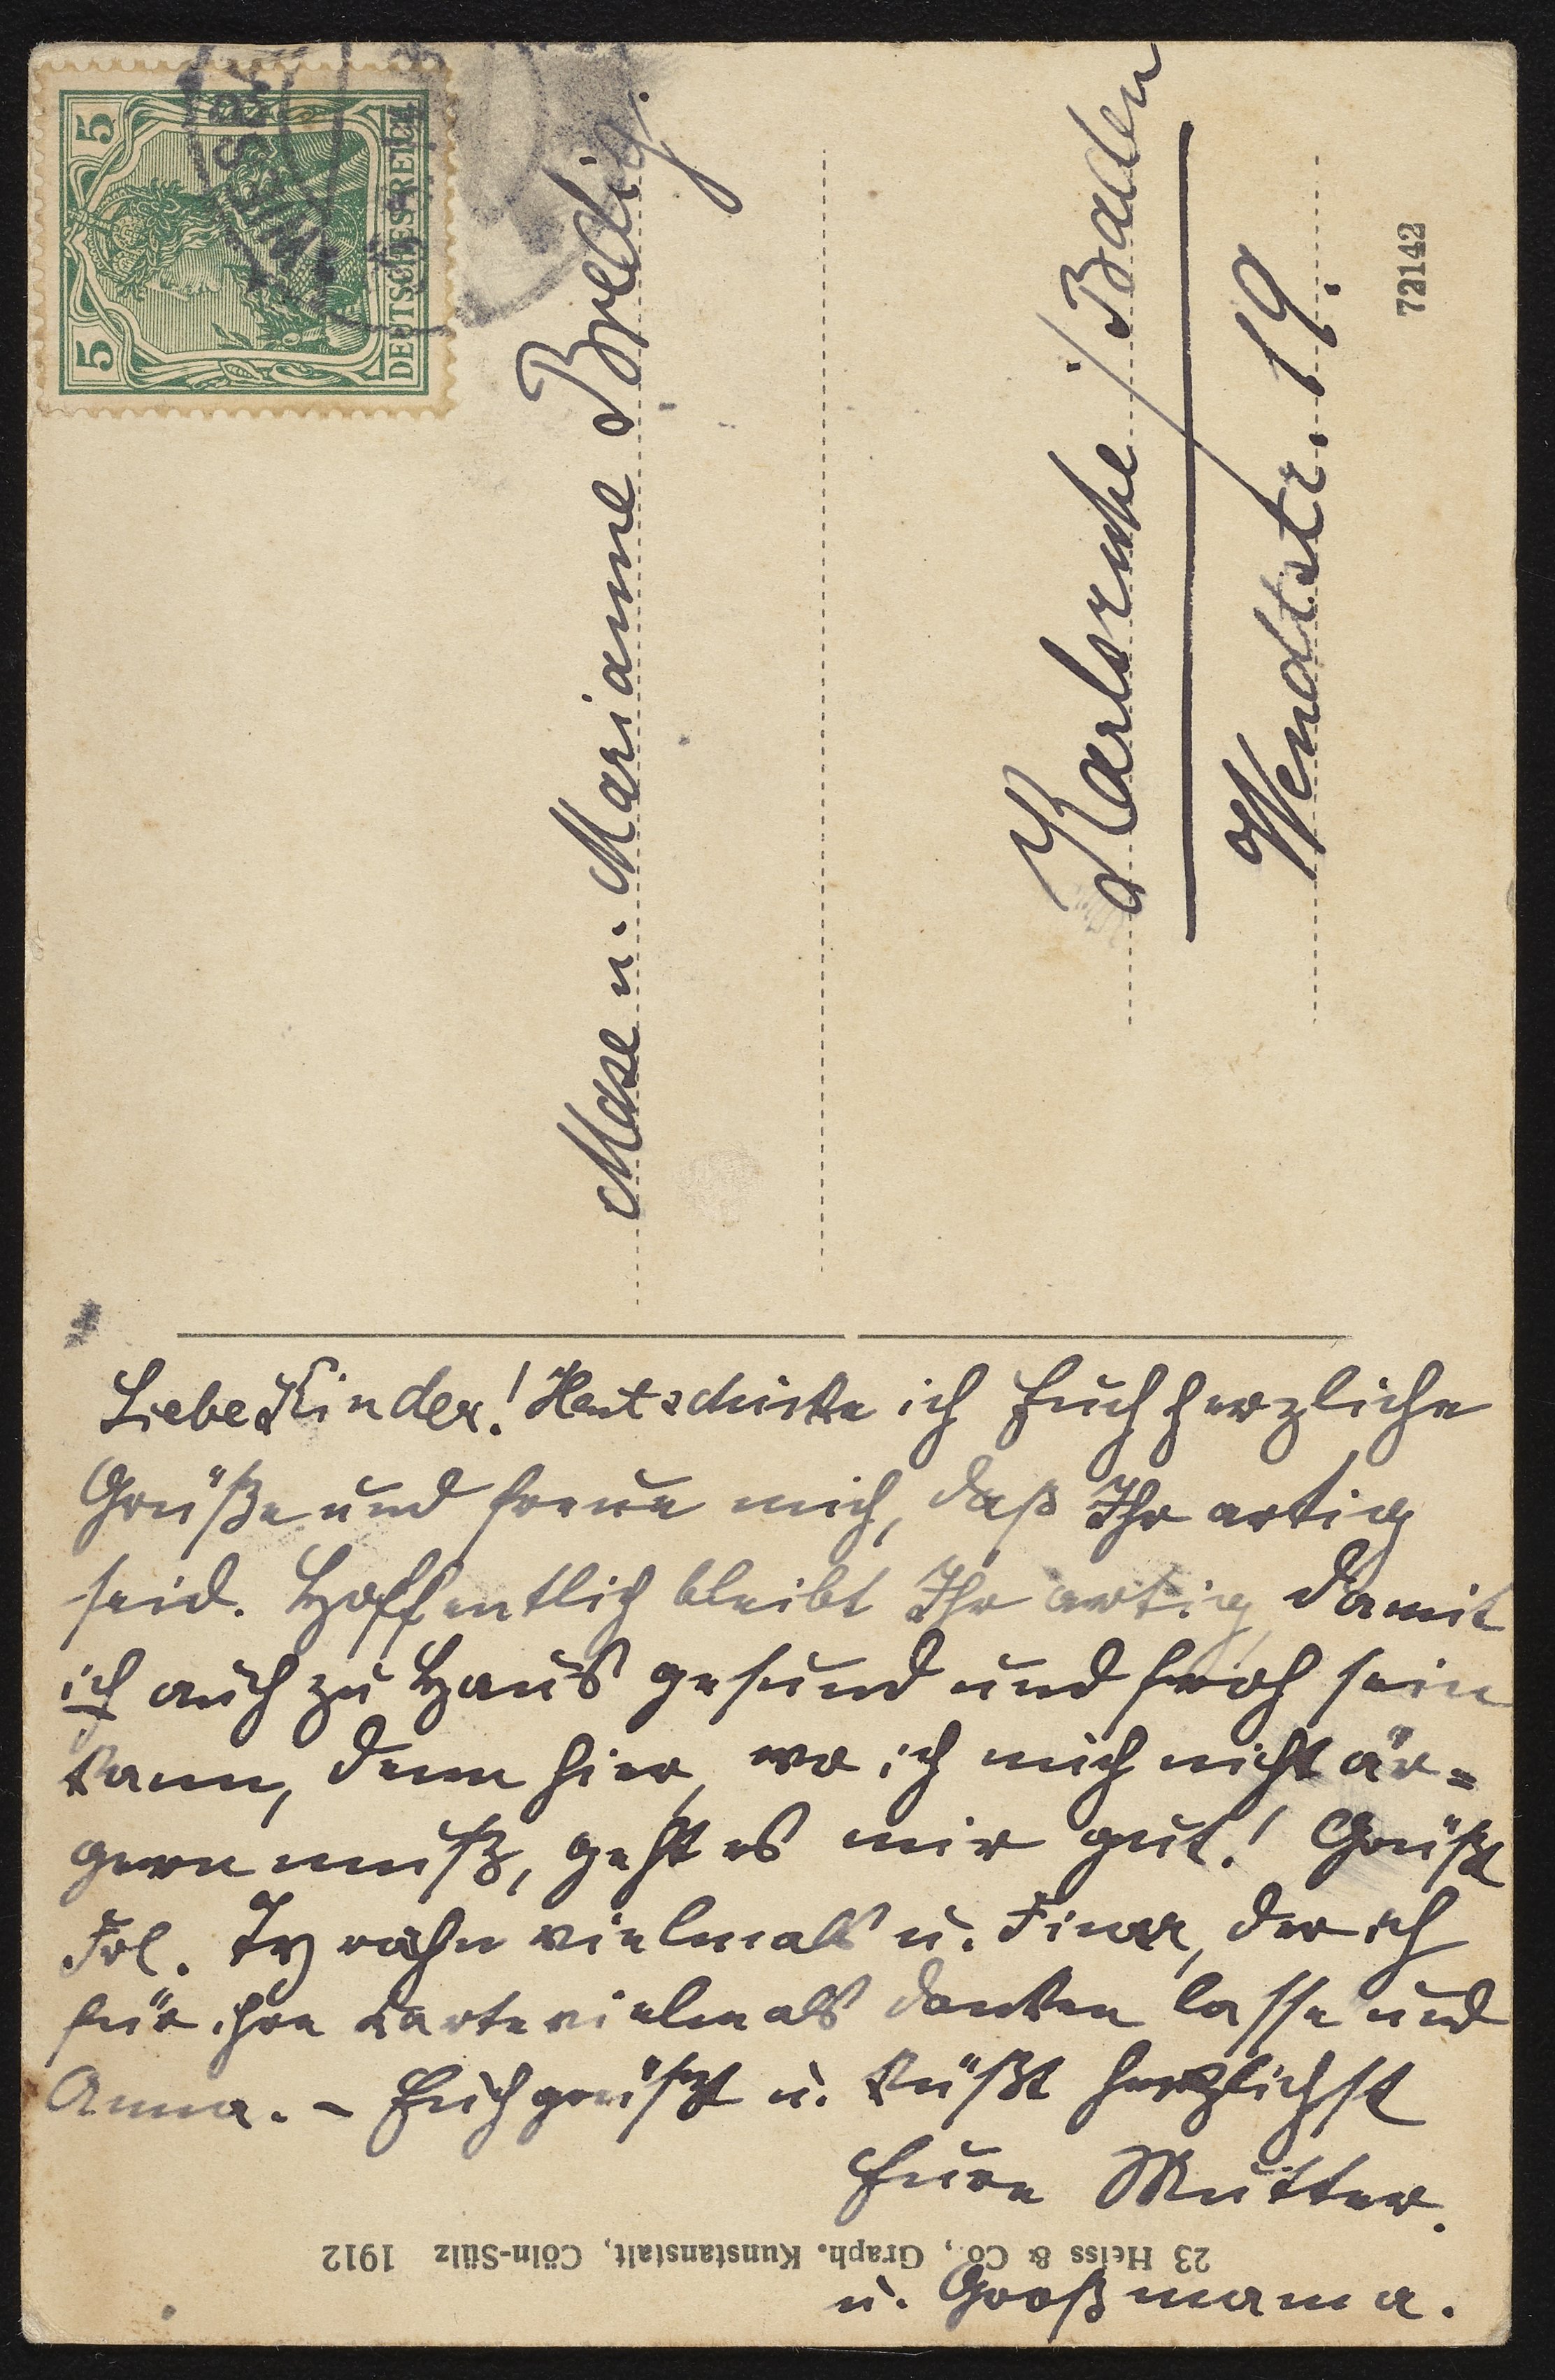 5
5
DEUTSCHES REICH
WIESBA
Maxe u. Marianne Bredig.
Karlsruhe i/Baden
Wendtstr. 19.
72142
Liebe Kinder! Heut schicke ich Euch herzliche
Grüße und freue mich, daß Ihr artig
seid. Hoffentlich bleibt Ihr artig, damit
ich auch zu Haus gesund und froh sein
kann, denn hier, wo ich mich nicht är=
gern muß, geht es mir gut! Grüßt
Frl. vielmals u. der ich
für ihre Karte vielmals danken lasse und
Anna. – Euch grüßt u. küßt herzlichst
Eure Mutter.
u. Großmama.
23 Heiss & Co., Graph. Kunstanstalt, Cöln-Sülz 1912